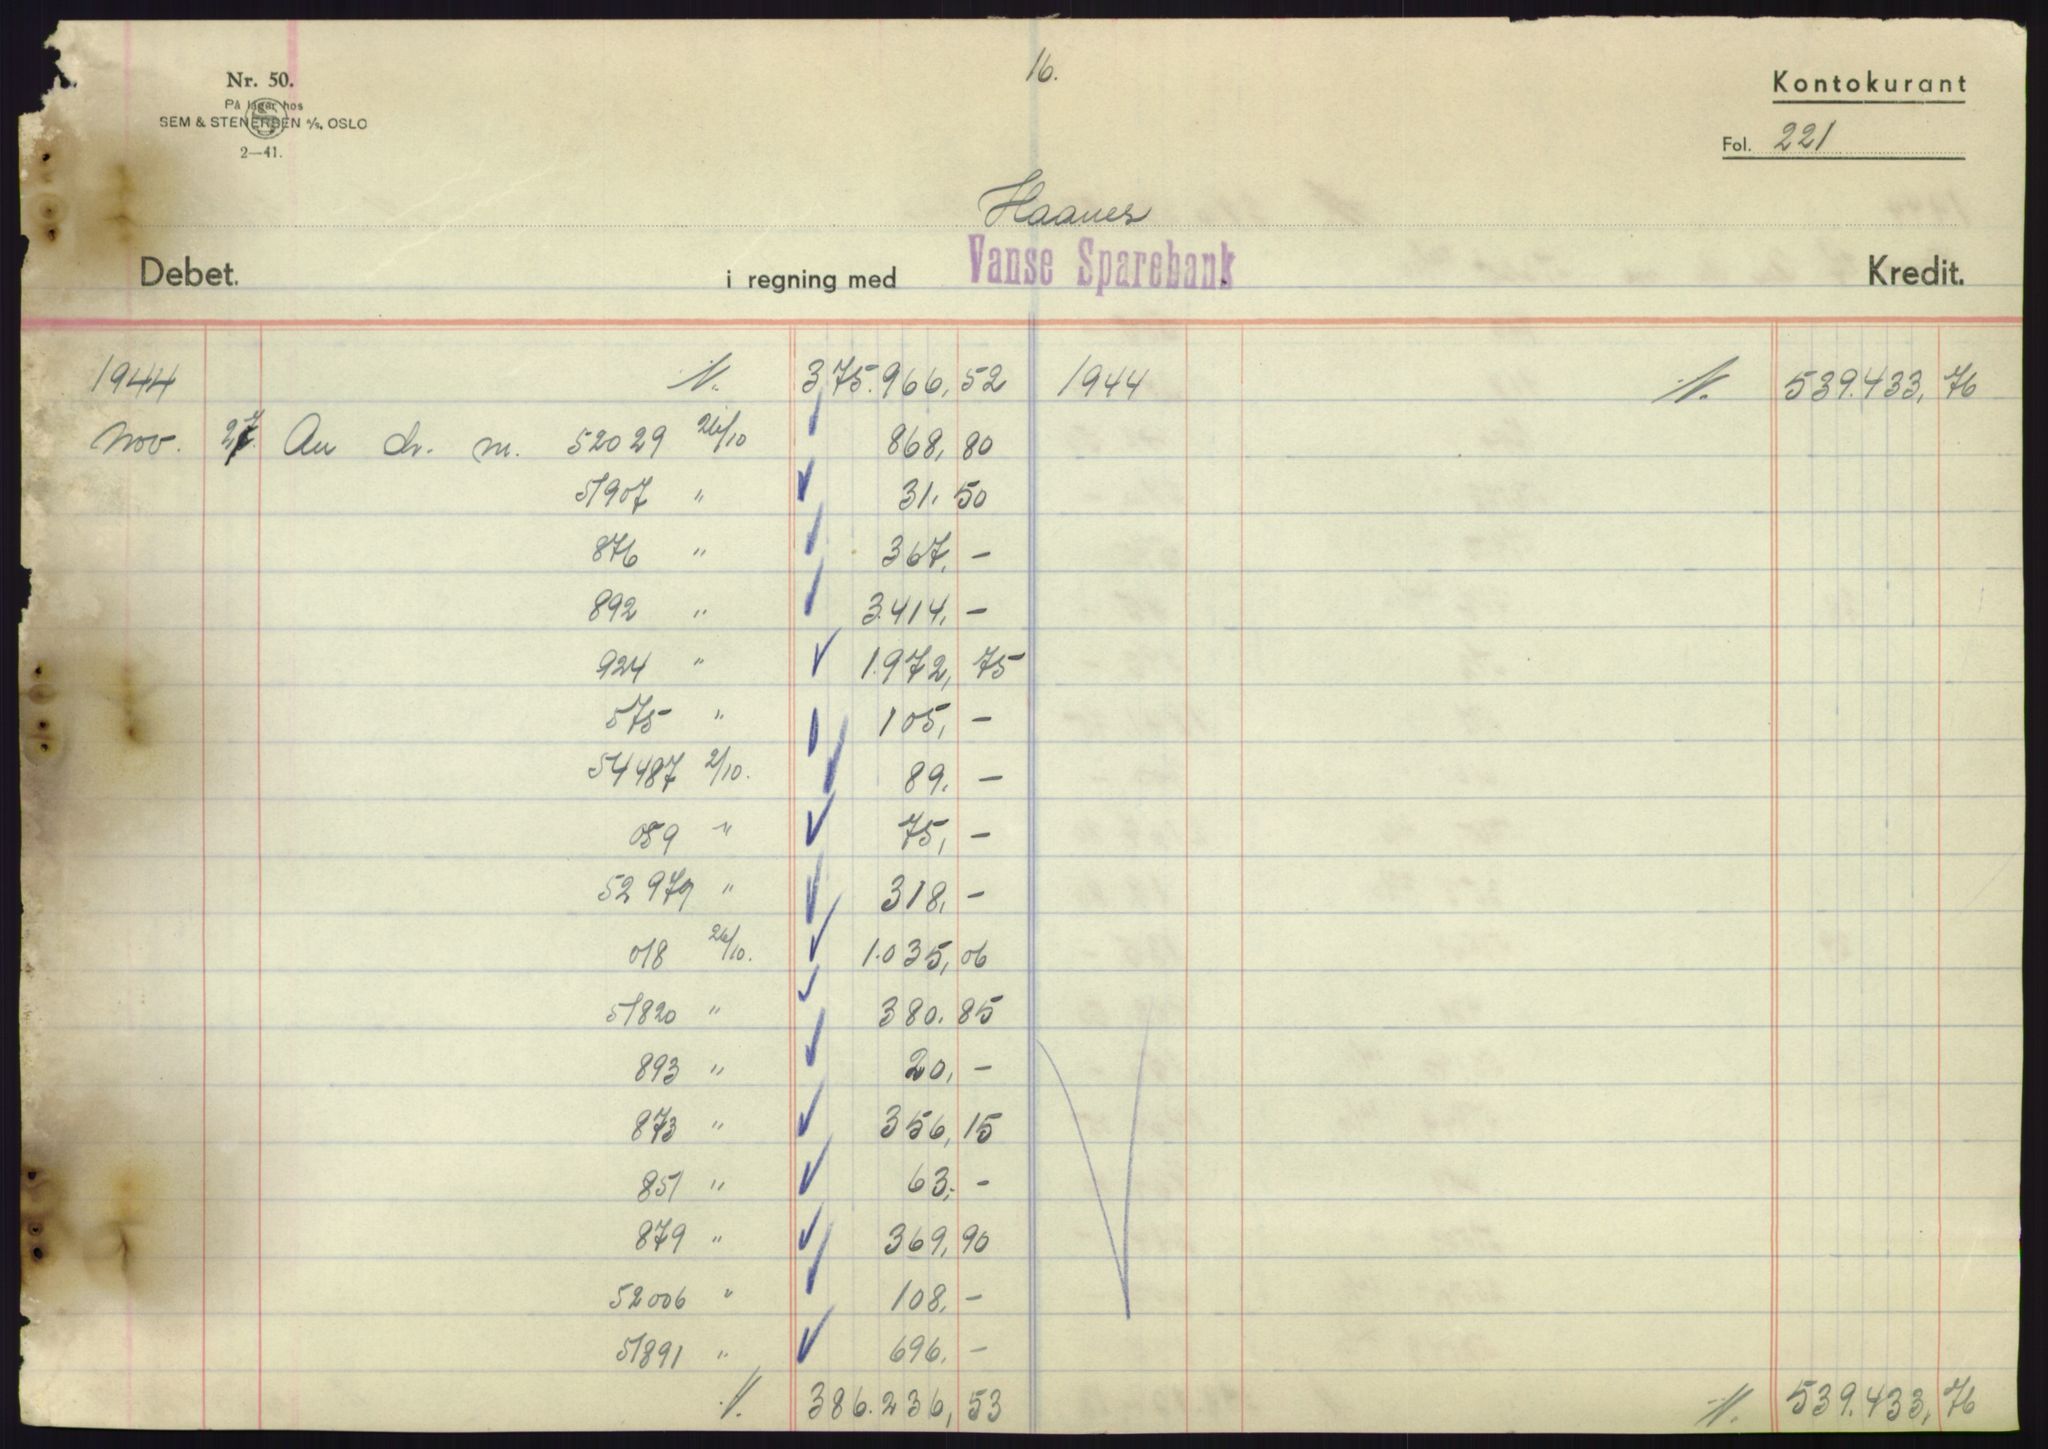 16.
Nr. 50.
På lager hos
SEM & STENERSEN A/S, OSLO
2—41.
Kontokurant
Fol. 221
Haanes
Debet. i regning med Vanse Sparebank Kredit.
1944 375.966,52 1944 539.433,76
Nov. 27. An dr. m. 52029 26/10 868,80
51907 " 31,50
876 " 367,—
892 " 3.414,—
924 " 1.972,75
575 " 105,—
54487 2/10. 89.—
059 " 75,—
52979 " 318,—
018 26/10. 1.035,06
51820 " 380.85
893 " 20,—
873 " 356,15
851 " 63,—
879 " 369,90
52006 " 108,—
51891 " 696.—
386.236,53 539.433,76